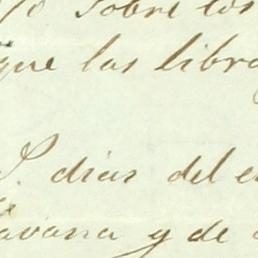 sobre los
que las libra
S. dias del e
avana y de